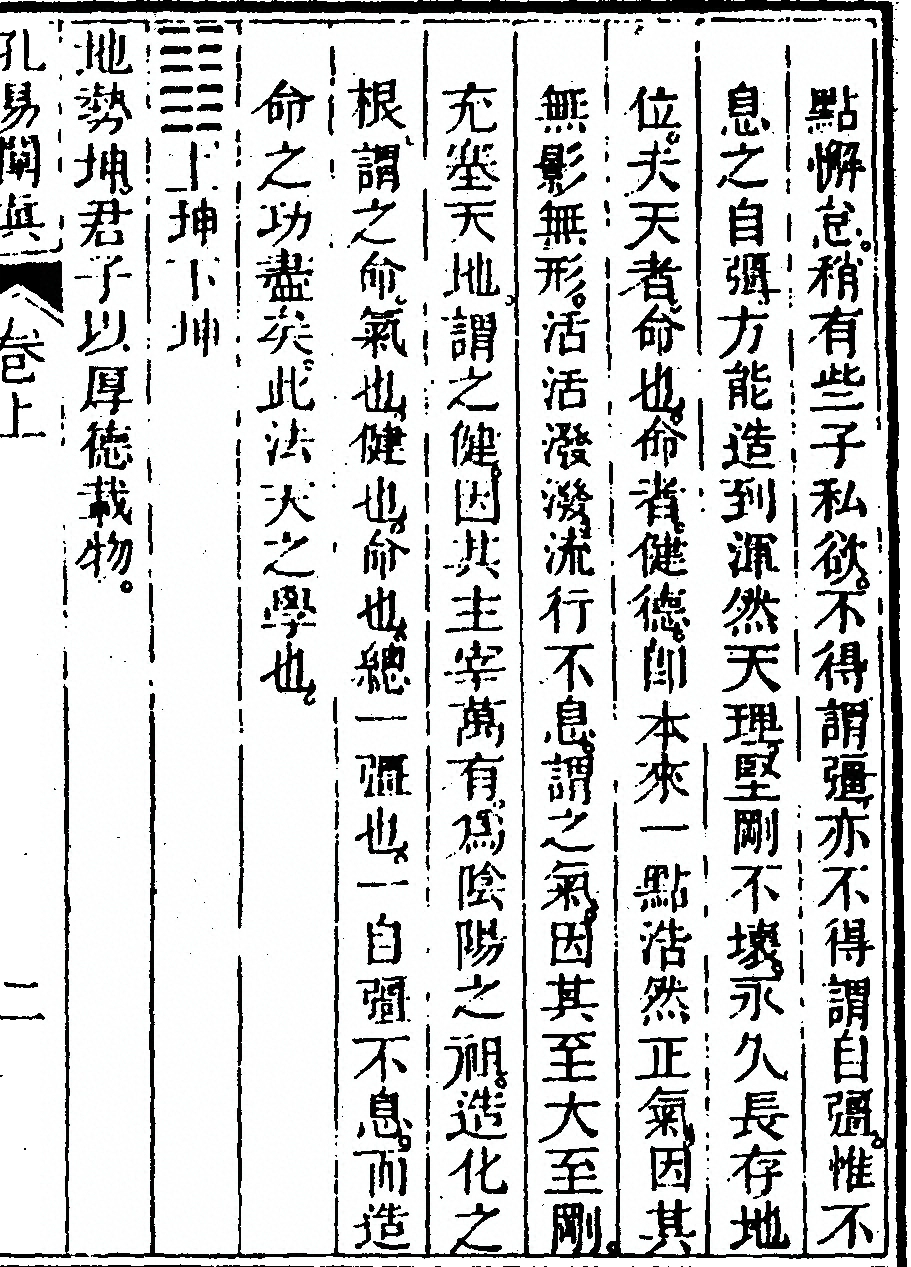 點懈怠。稍有些子私欲。不得謂彊。亦不得謂自彊。惟不
息之自彊。方能造到渾然天理。堅剛不壞。永久長存地
位。夫天者。命也。命者。健德。卽本來一點浩然正氣。因其
無影無形。活活潑潑。流行不息。謂之氣。因其至大至剛。
充塞天地。謂之健。因其主宰萬有。爲陰陽之祖。造化之
根。謂之命。氣也。健也。命也。總一彊也。一自彊不息。而造
命之功盡矣。此法天之學也。
䷁上坤下坤
地勢坤。君子以厚德載物。
孔易闡眞 卷上 二